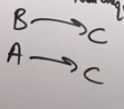 B → C
A → C